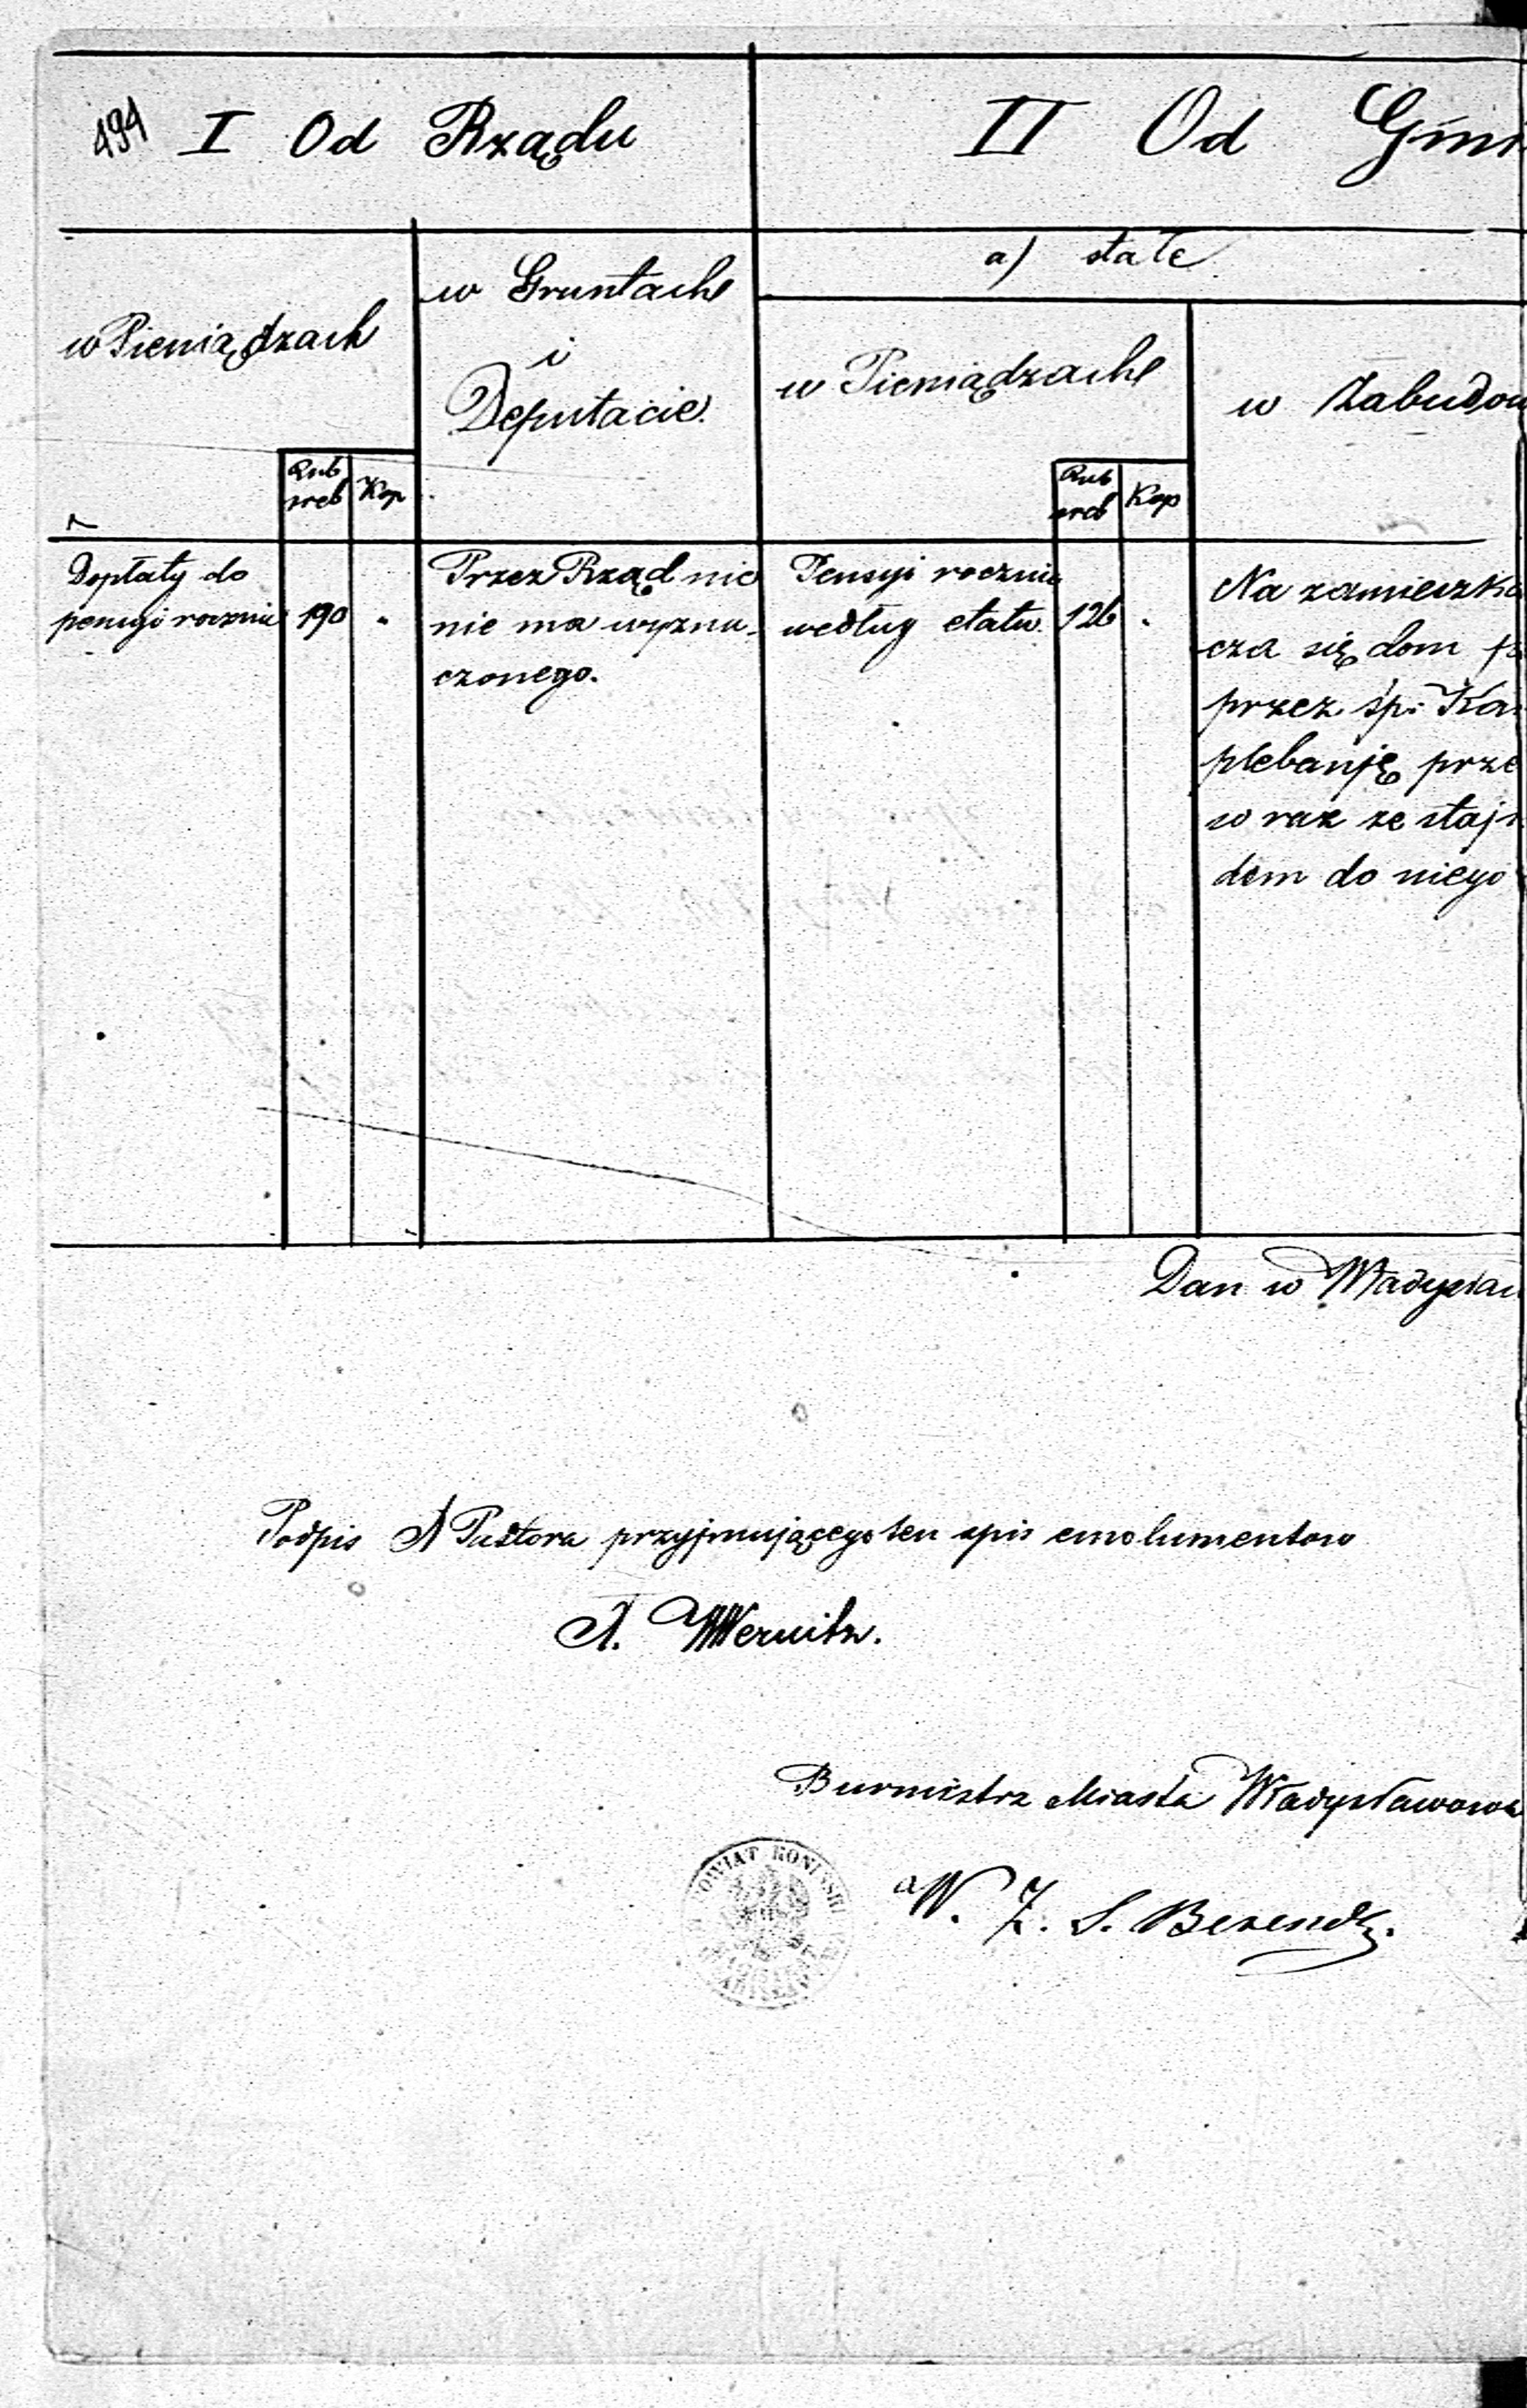 494 I Od Rządu
II Od Gmi
a) stałe
w Pieniądzach
w Gruntach
i
Deputacie.
w Pieniądzach
w Zabudow
Rub
sreb
Kop
Rub
sreb
Kop
Dopłaty do
pensyi rocznie 190 "
Przez Rząd nic
nie ma wyzna-
czonego.
Pensyi rocznie
według etatu. 126 "
Na zamieszka
cza się dom
przez śp: Ka
plebanję prze
w raz ze staj
dem do niego
Dan w Władysła
Podpis Pastora przyjmującego ten spis emolumentow
A. Wernitz.
Burmistrz Miasta Władysławowa
W. Z. S. Berendt.
POWIAT KONIŃSKI